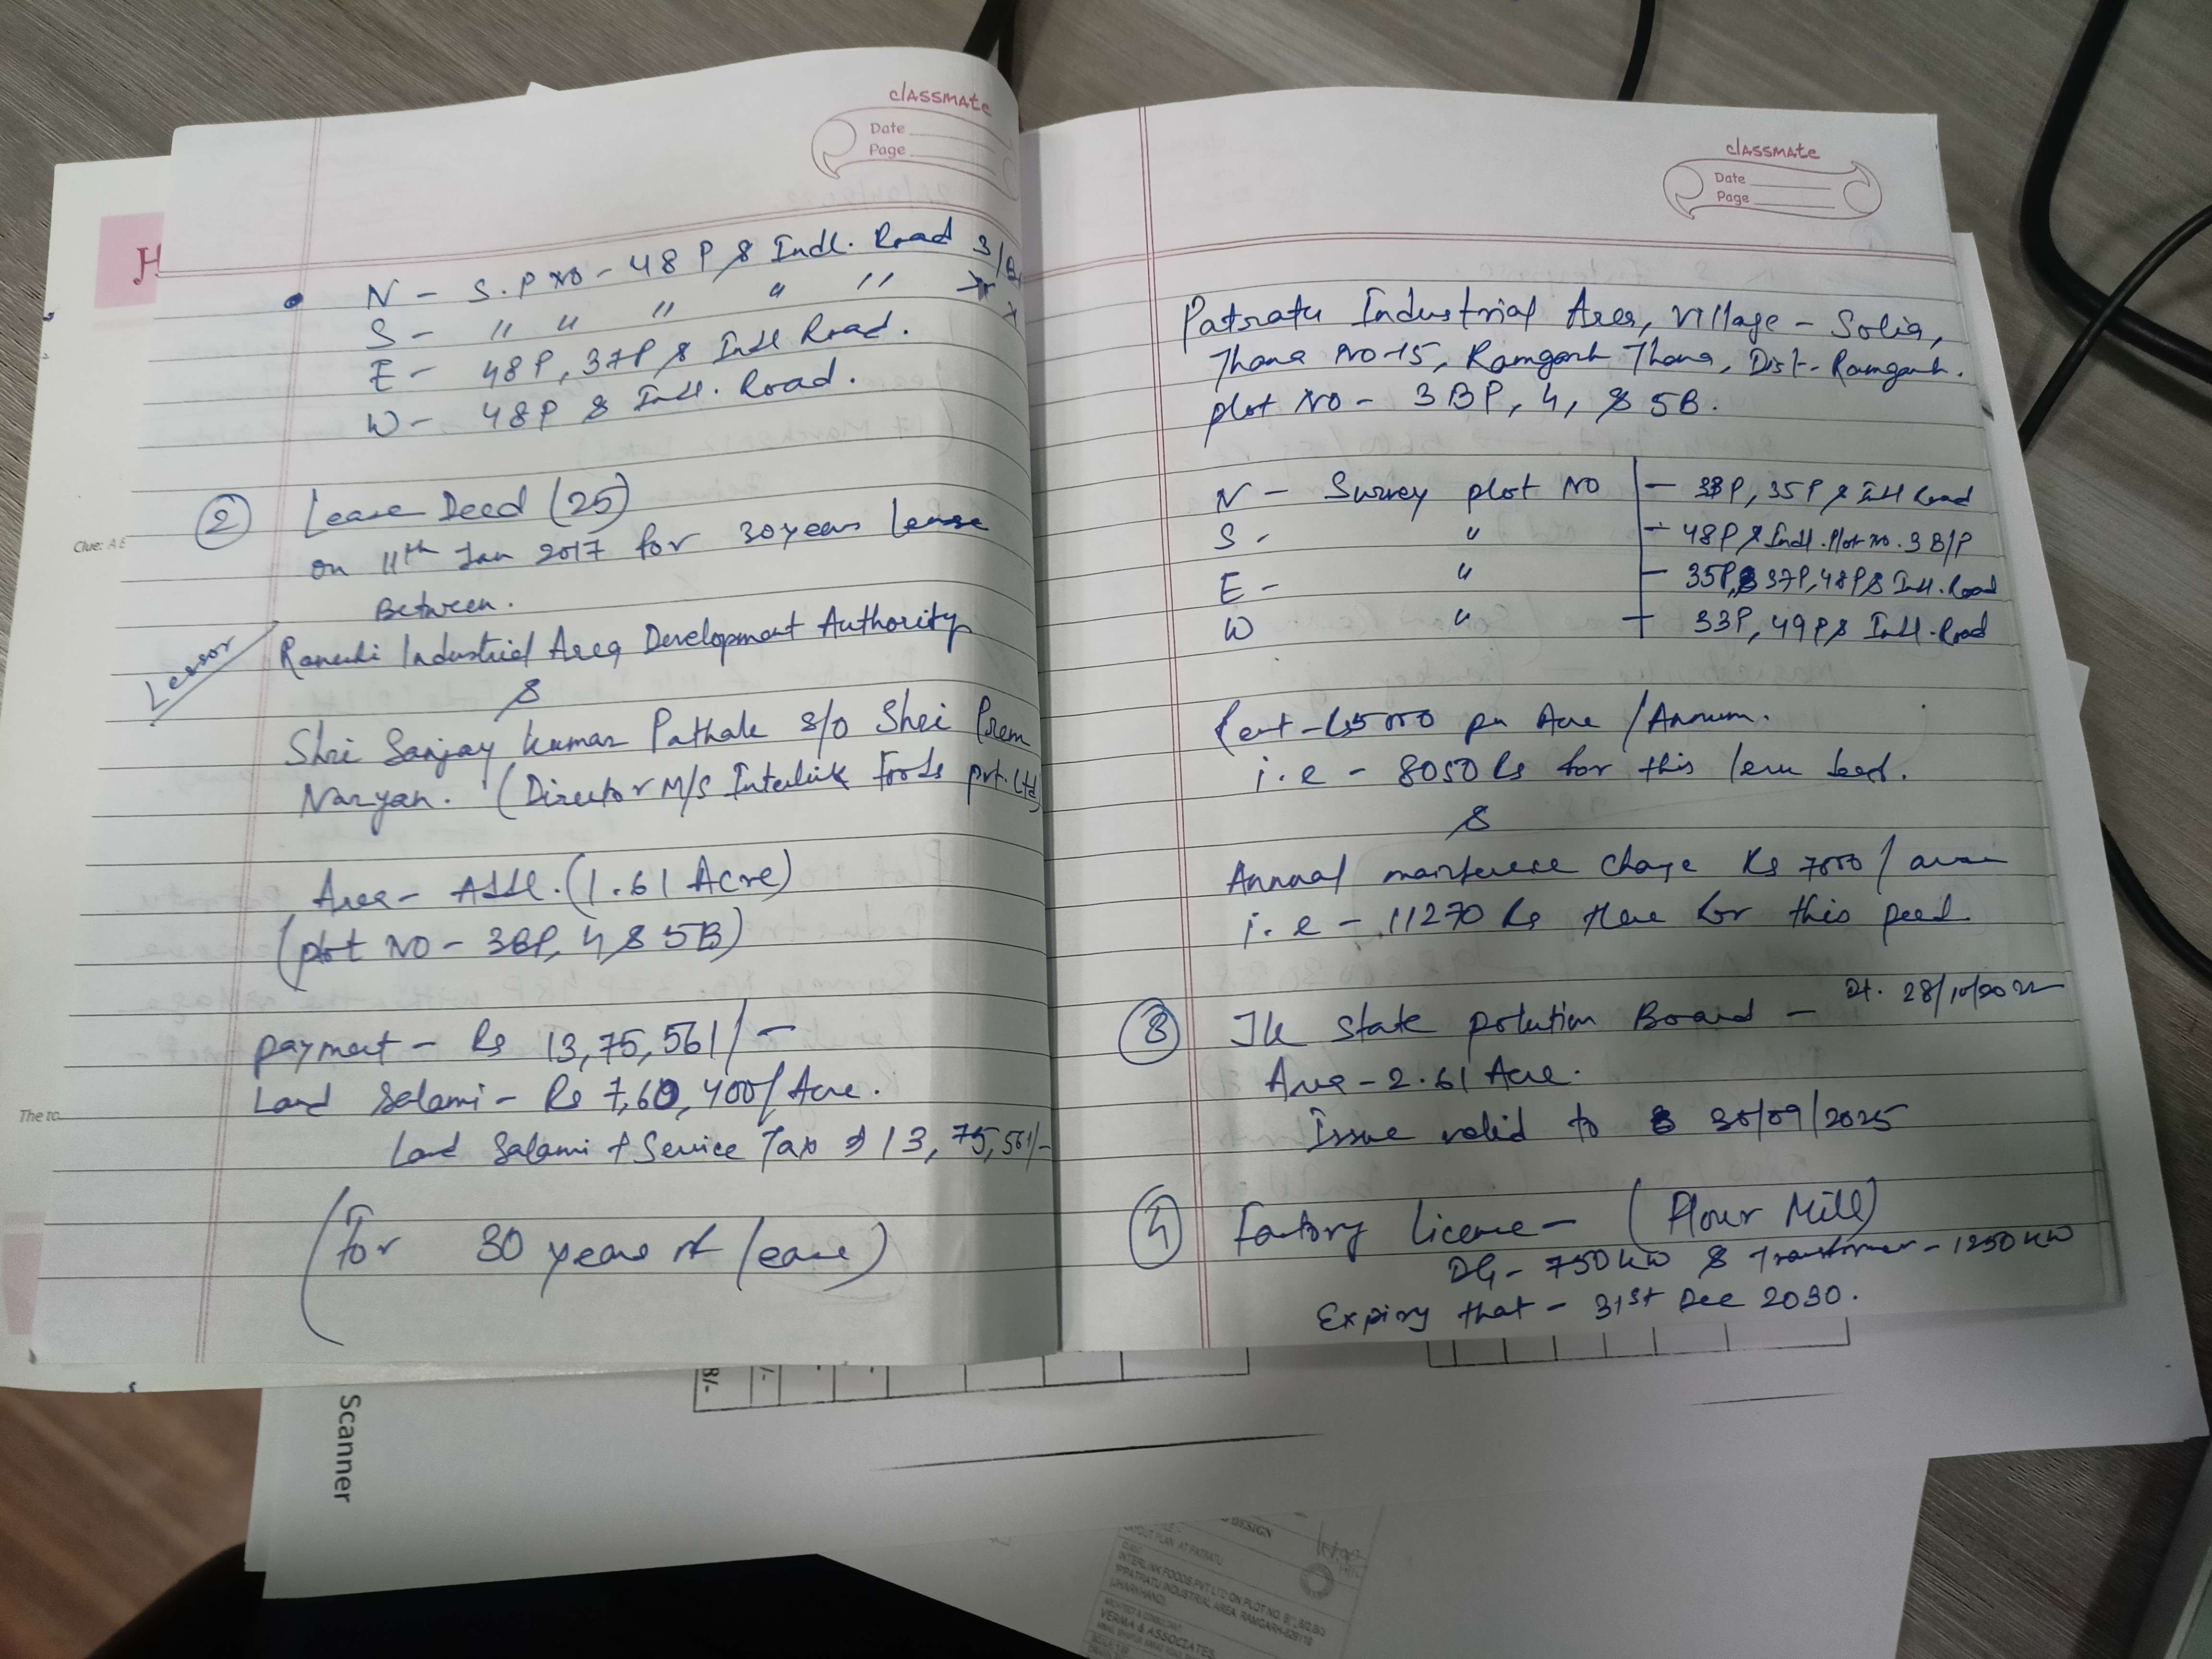 classmate
Date
Page
N - S.P NO - 48 P & Indl. Road 3/B
S - " " " " "
E - 48P, 37P & Indl Road.
W - 48P & Indl. Road.
② Lease Deed (25)
on 11th Jan 2017 for 30 years Lease
Between.
Lessor
Ranchi Industrial Area Development Authority
&
Shri Sanjay Kumar Pathak S/O Shri Prem
Naryan. (Director M/S Interlink Foods pvt. Ltd
Area - Addl. (1.61 Acre)
(plot NO - 3BP, 4, & 5B)
payment - Rs 13,75,561/-
Land Salami - Rs 7,60,400/Acre.
Land Salami + Service Tax 13,75,561/-
(For 30 years of lease)
classmate
Date
Page
Patratu Industrial Area, Village - Solia,
Thana NO-15, Ramgarh Thana, Dist - Ramgarh.
plot NO - 3BP, 4, & 5B.
N - Survey plot NO - 33P, 35P & Indl Road
S - " - 48P & Indl. Plot no. 3 B/P
E - " - 35P, 37P, 48P & Indl. Road
W " - 33P, 49P & Indl. Road
Rent - Rs 5000 per Acre / Annum.
i.e - 8050 Rs for this lease deed.
&
Annual maintenance charge Rs 7000 /
i.e - 11270 Rs for this Deed
③ JK State polution Board - Dt. 28/10/2022
Area - 2.61 Acre.
Issue valid to 30/09/2025
④ Factory Licence - (Flour Mill)
DG - 750 KW & Transformer - 1250 KW
Expiry that - 31st Dec 2030.
H
Clue: A
The to
Scanner
8/-
/-
DESIGN
LAYOUT PLAN AT PATRATU
INTERLINK FOODS PVT LTD ON PLOT NO.
PATRATU INDUSTRIAL AREA, RAMGARH-829119
(JHARKHAND)
ARCHITECT & CONSULTANT
VERMA & ASSOCIATES